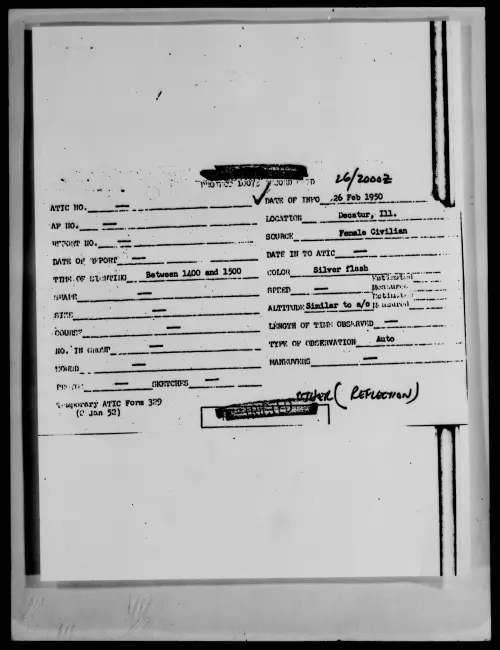 26/2000Z
PROJECT 10073 RECORD CARD
ATIC NO. —
DATE OF INFO 26 Feb 1950
AF NO. —
LOCATION Decatur, Ill.
REPORT NO. —
SOURCE Female Civilian
DATE OF REPORT —
DATE IN TO ATIC —
TIME OF SIGHTING Between 1400 and 1500
COLOR Silver flash
SHAPE —
SPEED —
Estimated
Measured
SIZE —
ALTITUDE Similar to a/c
Estimated
Measured
COURSE —
LENGTH OF TIME OBSERVED —
NO. IN GROUP —
TYPE OF OBSERVATION Auto
SOUND —
MANEUVERS —
PHOTOS — SKETCHES —
Temporary ATIC Form 329
(2 Jan 52)
OTHER (REFLECTION)